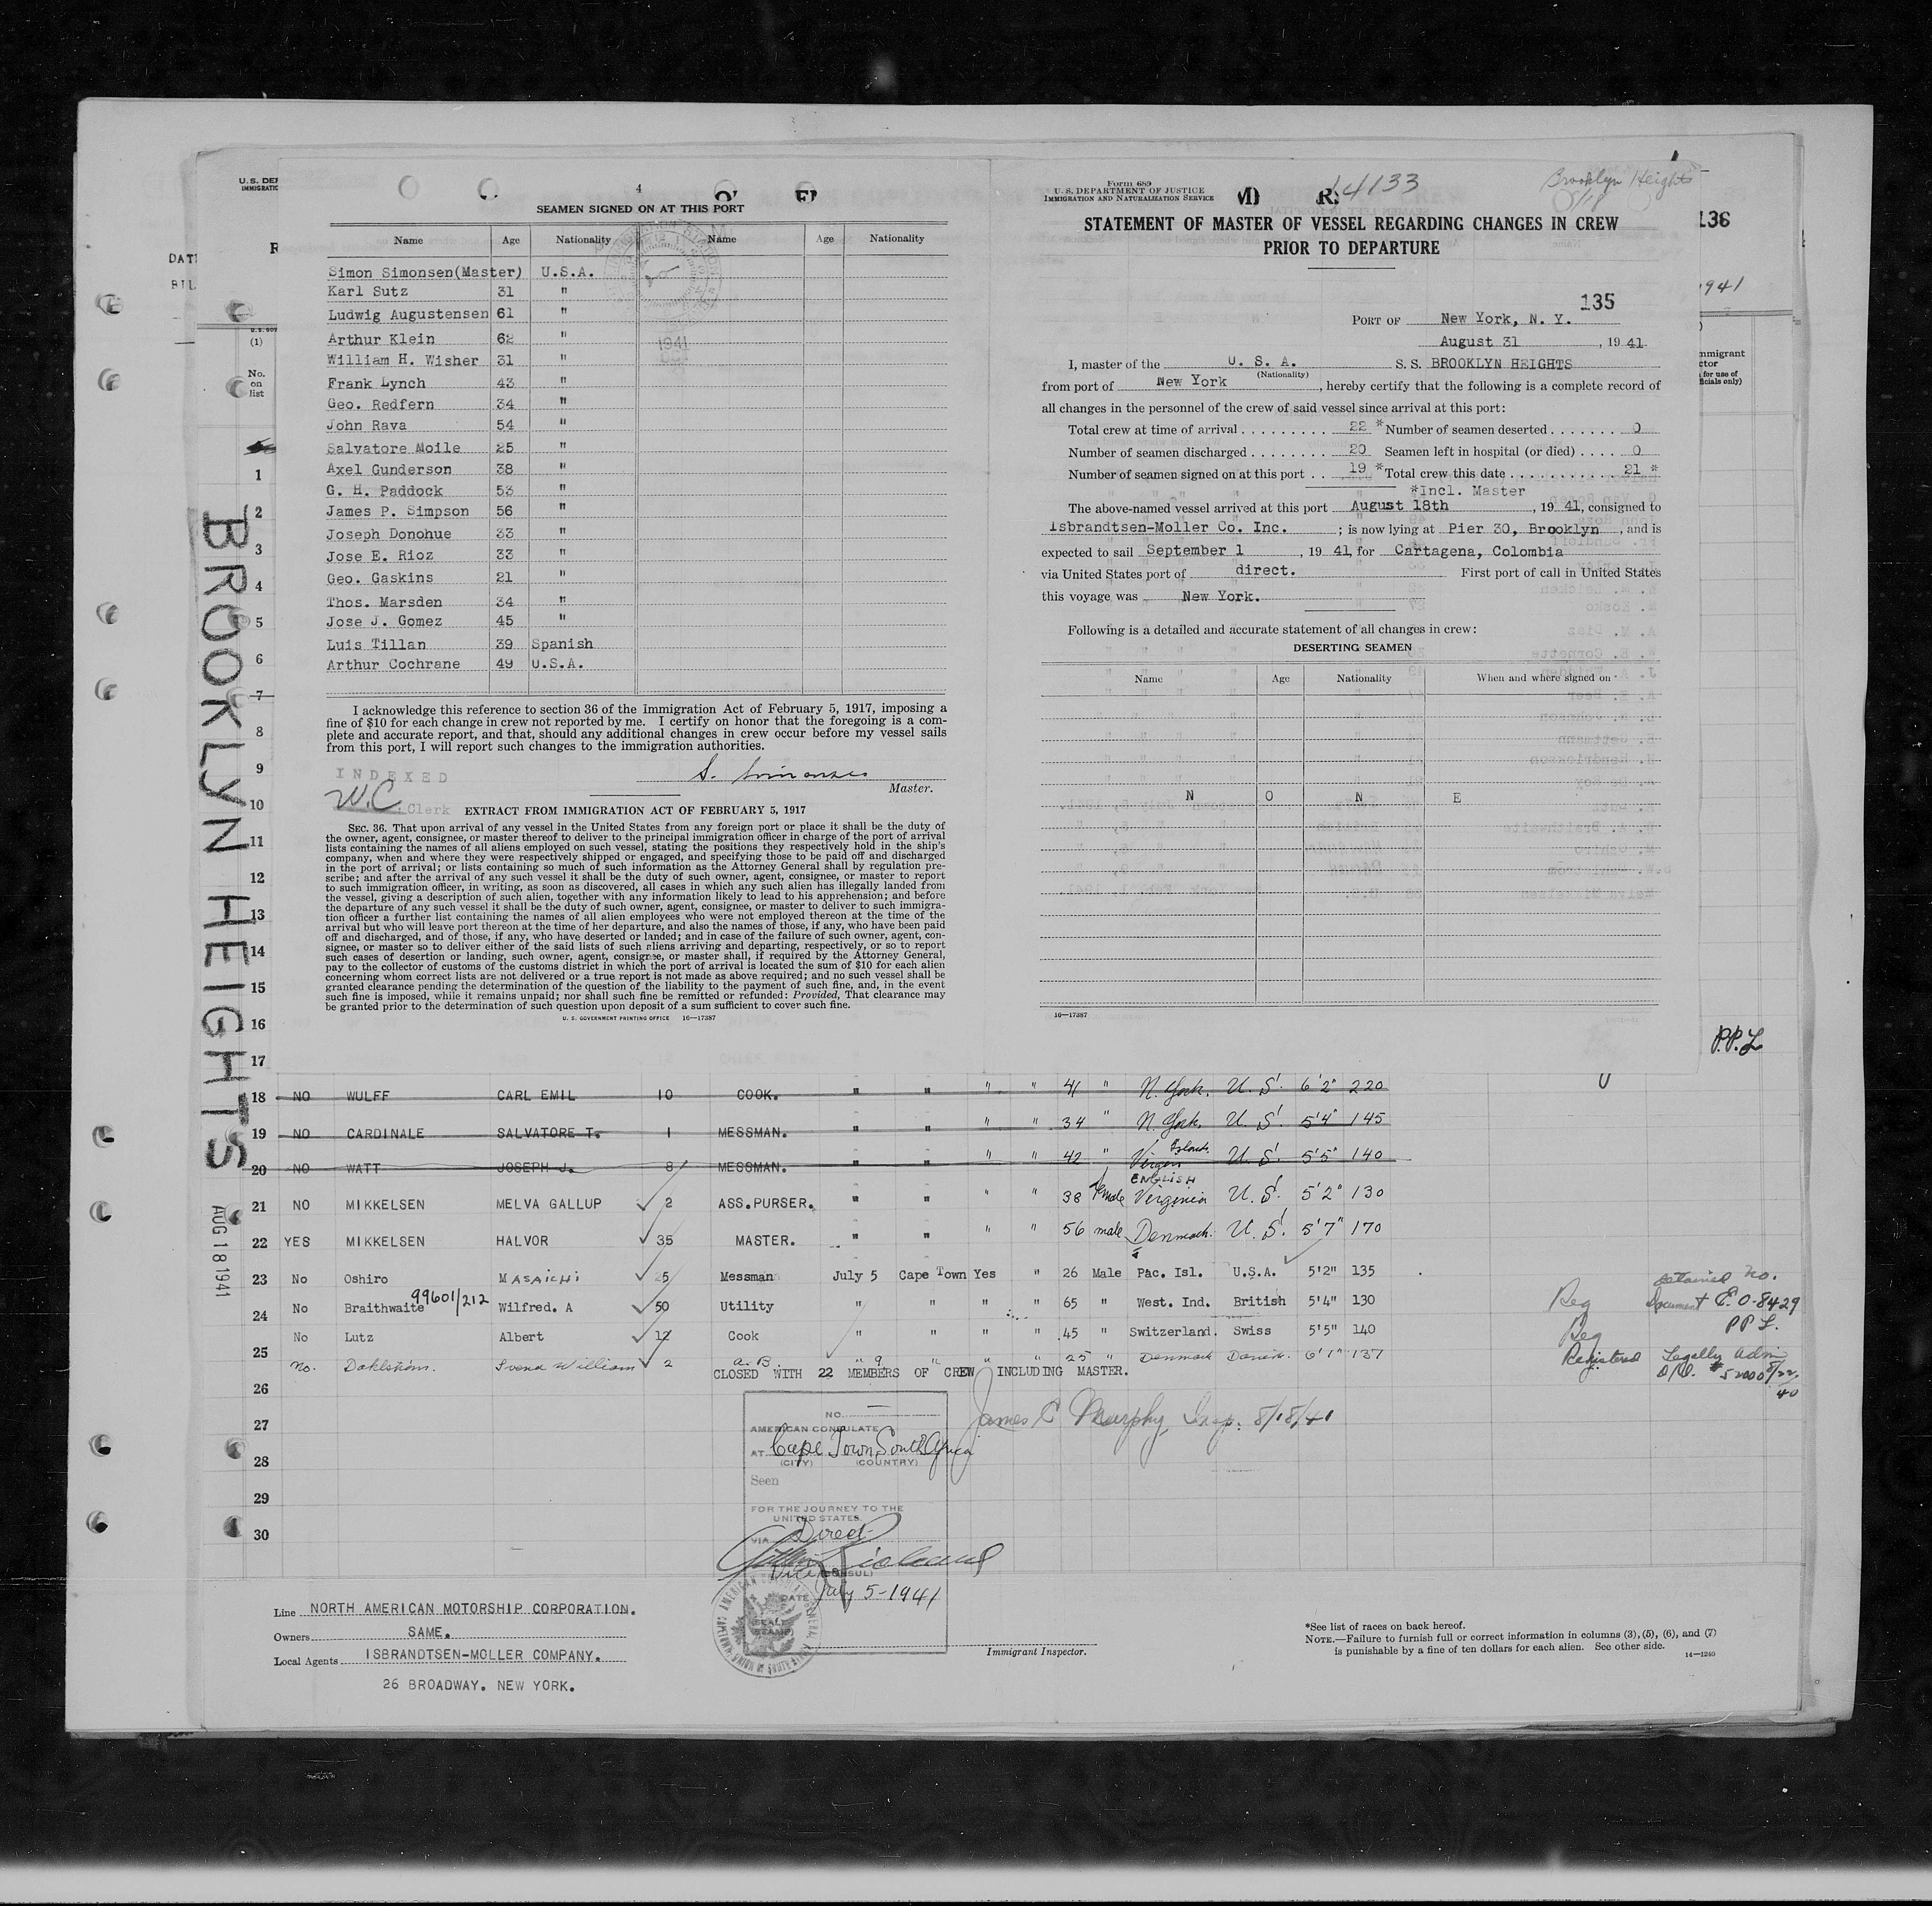 BROOKLYN HEIGHTS
AUG 18 1941
4
SEAMEN SIGNED ON AT THIS PORT
Name Age Nationality Name Age Nationality
Simon Simonsen(Master) U.S.A.
Karl Sutz 31 "
Ludwig Augustensen 61 "
Arthur Klein 62 "
William H. Wisher 31 "
Frank Lynch 43 "
Geo. Redfern 34 "
John Rava 54 "
Salvatore Moile 25 "
Axel Gunderson 38 "
G. H. Paddock 53 "
James P. Simpson 56 "
Joseph Donohue 33 "
Jose E. Rioz 33 "
Geo. Gaskins 21 "
Thos. Marsden 34 "
Jose J. Gomez 45 "
Luis Tillan 39 Spanish
Arthur Cochrane 49 U.S.A.
I acknowledge this reference to section 36 of the Immigration Act of February 5, 1917, imposing a
fine of $10 for each change in crew not reported by me. I certify on honor that the foregoing is a com-
plete and accurate report, and that, should any additional changes in crew occur before my vessel sails
from this port, I will report such changes to the immigration authorities.
INDEXED
S. Simonsen
Master.
W.C. Clerk
EXTRACT FROM IMMIGRATION ACT OF FEBRUARY 5, 1917
SEC. 36. That upon arrival of any vessel in the United States from any foreign port or place it shall be the duty of
the owner, agent, consignee, or master thereof to deliver to the principal immigration officer in charge of the port of arrival
lists containing the names of all aliens employed on such vessel, stating the positions they respectively hold in the ship's
company, when and where they were respectively shipped or engaged, and specifying those to be paid off and discharged
in the port of arrival; or lists containing so much of such information as the Attorney General shall by regulation pre-
scribe; and after the arrival of any such vessel it shall be the duty of such owner, agent, consignee, or master to report
to such immigration officer, in writing, as soon as discovered, all cases in which any such alien has illegally landed from
the vessel, giving a description of such alien, together with any information likely to lead to his apprehension; and before
the departure of any such vessel it shall be the duty of such owner, agent, consignee, or master to deliver to such immigra-
tion officer a further list containing the names of all alien employees who were not employed thereon at the time of the
arrival but who will leave port thereon at the time of her departure, and also the names of those, if any, who have been paid
off and discharged, and of those, if any, who have deserted or landed; and in case of the failure of such owner, agent, con-
signee, or master so to deliver either of the said lists of such aliens arriving and departing, respectively, or so to report
such cases of desertion or landing, such owner, agent, consignee, or master shall, if required by the Attorney General,
pay to the collector of customs of the customs district in which the port of arrival is located the sum of $10 for each alien
concerning whom correct lists are not delivered or a true report is not made as above required; and no such vessel shall be
granted clearance pending the determination of the question of the liability to the payment of such fine, and, in the event
such fine is imposed, while it remains unpaid; nor shall such fine be remitted or refunded: Provided, That clearance may
be granted prior to the determination of such question upon deposit of a sum sufficient to cover such fine.
U. S. GOVERNMENT PRINTING OFFICE 16—17387
Form 689
U. S. DEPARTMENT OF JUSTICE
IMMIGRATION AND NATURALIZATION SERVICE
14133
Brooklyn Heights
8/18
136
STATEMENT OF MASTER OF VESSEL REGARDING CHANGES IN CREW
PRIOR TO DEPARTURE
135
PORT OF New York, N. Y.
August 31, 1941
I, master of the U. S. A. S. S. BROOKLYN HEIGHTS
(Nationality)
from port of New York, hereby certify that the following is a complete record of
all changes in the personnel of the crew of said vessel since arrival at this port:
Total crew at time of arrival 22 * Number of seamen deserted 0
Number of seamen discharged 20 Seamen left in hospital (or died) 0
Number of seamen signed on at this port 19 * Total crew this date 21 *
*Incl. Master
The above-named vessel arrived at this port August 18th, 1941, consigned to
Isbrandtsen-Moller Co. Inc.; is now lying at Pier 30, Brooklyn, and is
expected to sail September 1, 1941, for Cartagena, Colombia
via United States port of direct. First port of call in United States
this voyage was New York.
Following is a detailed and accurate statement of all changes in crew:
DESERTING SEAMEN
Name Age Nationality When and where signed on
N O N E
16—17387
P.P.L
18 NO WULFF CARL EMIL 10 COOK. " " " " 41 " N. York. U. S. 6'2" 220
19 NO CARDINALE SALVATORE T. 1 MESSMAN. " " " " 34 " N. York. U. S. 5'4" 145
20 NO WATT JOSEPH J. 8 MESSMAN. " " " " 42 " Virgin Islands. U. S. 5'5" 140
21 NO MIKKELSEN MELVA GALLUP 2 ASS.PURSER. " " " " 38 Female ENGLISH Virginia U. S. 5'2" 130
22 YES MIKKELSEN HALVOR 35 MASTER. " " " " 56 male Denmark. U. S. 5'7" 170
23 No Oshiro MASAICHI 25 Messman July 5 Cape Town Yes " 26 Male Pac. Isl. U.S.A. 5'2" 135
24 No Braithwaite 99601/212 Wilfred. A 50 Utility " " " " 65 " West. Ind. British 5'4" 130 Reg Document E.O-8429
No Lutz Albert 12 Cook " " " " 45 " Switzerland. Swiss 5'5" 140 Reg P P L.
25 no. Dahlström. Svend William 2 a.B. " 9 " " " 25 " Denmark Danish. 6'1" 137 Registered Legally Adm
CLOSED WITH 22 MEMBERS OF CREW INCLUDING MASTER.
26
James C Murphy Insp. 8/18/41
27
28
29
30
NO. —
AMERICAN CONSULATE
AT Cape Town, South Africa
(CITY) (COUNTRY)
Seen
FOR THE JOURNEY TO THE
UNITED STATES
VIA Direct
Vice (CONSUL)
July 5-1941
DATE
Line NORTH AMERICAN MOTORSHIP CORPORATION.
Owners SAME.
Local Agents ISBRANDTSEN-MOLLER COMPANY.
26 BROADWAY. NEW YORK.
Immigrant Inspector.
*See list of races on back hereof.
NOTE.—Failure to furnish full or correct information in columns (3), (5), (6), and (7)
is punishable by a fine of ten dollars for each alien. See other side.
14—1240